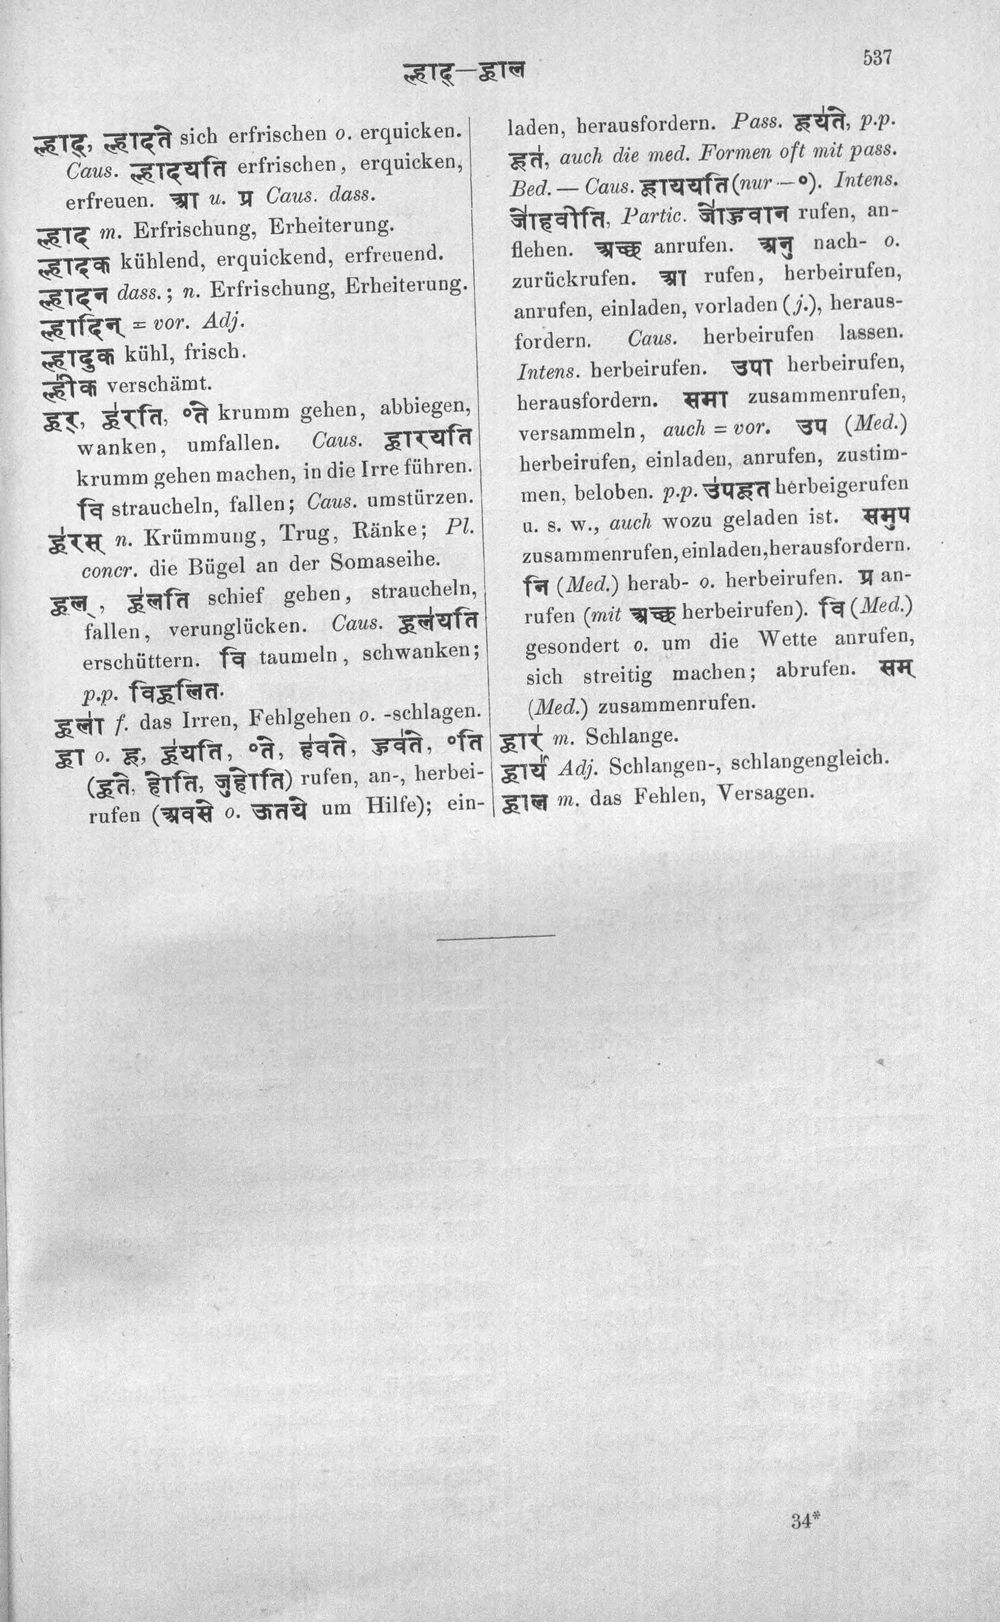 ह्लाद्—ह्वाल
537
ह्लाद्, ह्लादते sich erfrischen o. erquicken.
Caus. ह्लादयति erfrischen, erquicken,
erfreuen. आ u. प्र Caus. dass.
ह्लाद m. Erfrischung, Erheiterung.
ह्लादक kühlend, erquickend, erfreuend.
ह्लादन dass.; n. Erfrischung, Erheiterung.
ह्लादिन् = vor. Adj.
ह्लादुक kühl, frisch.
ह्लीक verschämt.
ह्वर्, ह्वरति, °ते krumm gehen, abbiegen,
wanken, umfallen. Caus. ह्वारयति
krumm gehen machen, in die Irre führen.
वि straucheln, fallen; Caus. umstürzen.
ह्वरस् n. Krümmung, Trug, Ränke; Pl.
concr. die Bügel an der Somaseihe.
ह्वल्, ह्वलति schief gehen, straucheln,
fallen, verunglücken. Caus. ह्वलयति
erschüttern. वि taumeln, schwanken;
p.p. विह्वलित.
ह्वला f. das Irren, Fehlgehen o. -schlagen.
ह्वा o. हू, ह्वयति, °ते, हवते, हुवते, °ति
(हूते, होति, जुहोति) rufen, an-, herbei-
rufen (अवसे o. ऊतये um Hilfe); ein-
laden, herausfordern. Pass. हूयते, p.p.
हूत, auch die med. Formen oft mit pass.
Bed. — Caus. ह्वाययति (nur —°). Intens.
जोहवीति, Partic. जोहुवान rufen, an-
flehen. अच्छ anrufen. अनु nach- o.
zurückrufen. आ rufen, herbeirufen,
anrufen, einladen, vorladen (j.), heraus-
fordern. Caus. herbeirufen lassen.
Intens. herbeirufen. उपा herbeirufen,
herausfordern. समा zusammenrufen,
versammeln, auch = vor. उप (Med.)
herbeirufen, einladen, anrufen, zustim-
men, beloben. p.p. उपहूत herbeigerufen
u. s. w., auch wozu geladen ist. समुप
zusammenrufen, einladen, herausfordern.
नि (Med.) herab- o. herbeirufen. प्र an-
rufen (mit अच्छ herbeirufen). वि (Med.)
gesondert o. um die Wette anrufen,
sich streitig machen; abrufen. सम्
(Med.) zusammenrufen.
ह्वार m. Schlange.
ह्वार्य Adj. Schlangen-, schlangengleich.
ह्वाल m. das Fehlen, Versagen.
34*